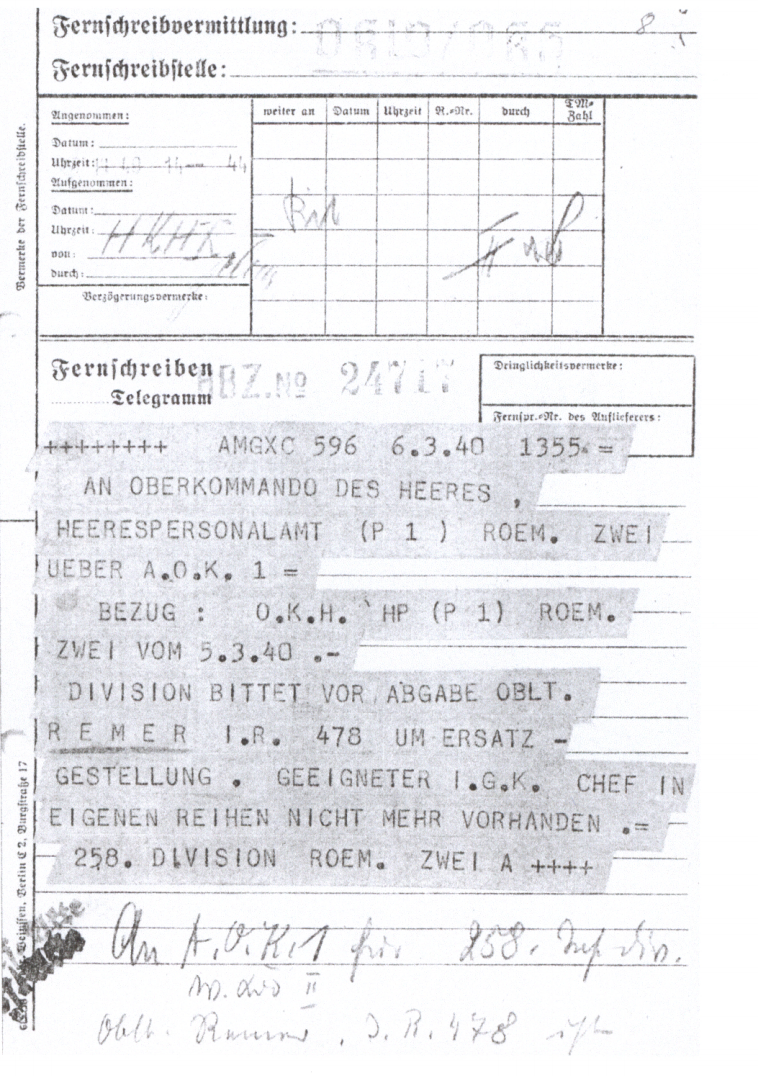 Fernschreibvermittlung:
Fernschreibstelle:
Vermerke der Fernschreibstelle.
Angenommen:
Datum:
Uhrzeit:
Aufgenommen:
Datum:
Uhrzeit:
von:
durch:
Verzögerungsvermerke:
weiter an Datum Uhrzeit R.=Nr. durch TM= Zahl
Fernschreiben
Telegramm
BBZ.No 24717
Dringlichkeitsvermerke:
Fernspr.=Nr. des Auflieferers:
++++++++ AMGXC 596 6.3.40 1355. =
AN OBERKOMMANDO DES HEERES ,
HEERESPERSONALAMT (P 1 ) ROEM. ZWEI
UEBER A.O.K. 1 =
BEZUG : O.K.H. HP (P 1) ROEM.
ZWEI VOM 5.3.40 .-
DIVISION BITTET VOR ABGABE OBLT.
R E M E R I.R. 478 UM ERSATZ -
GESTELLUNG . GEEIGNETER I.G.K. CHEF IN
EIGENEN REIHEN NICHT MEHR VORHANDEN .=
258. DIVISION ROEM. ZWEI A ++++
An A.O.K.1 für 258. Inf. div.
II
Oblt. Remer, I.R. 478 ist
Berlin C 2, Burgstraße 17